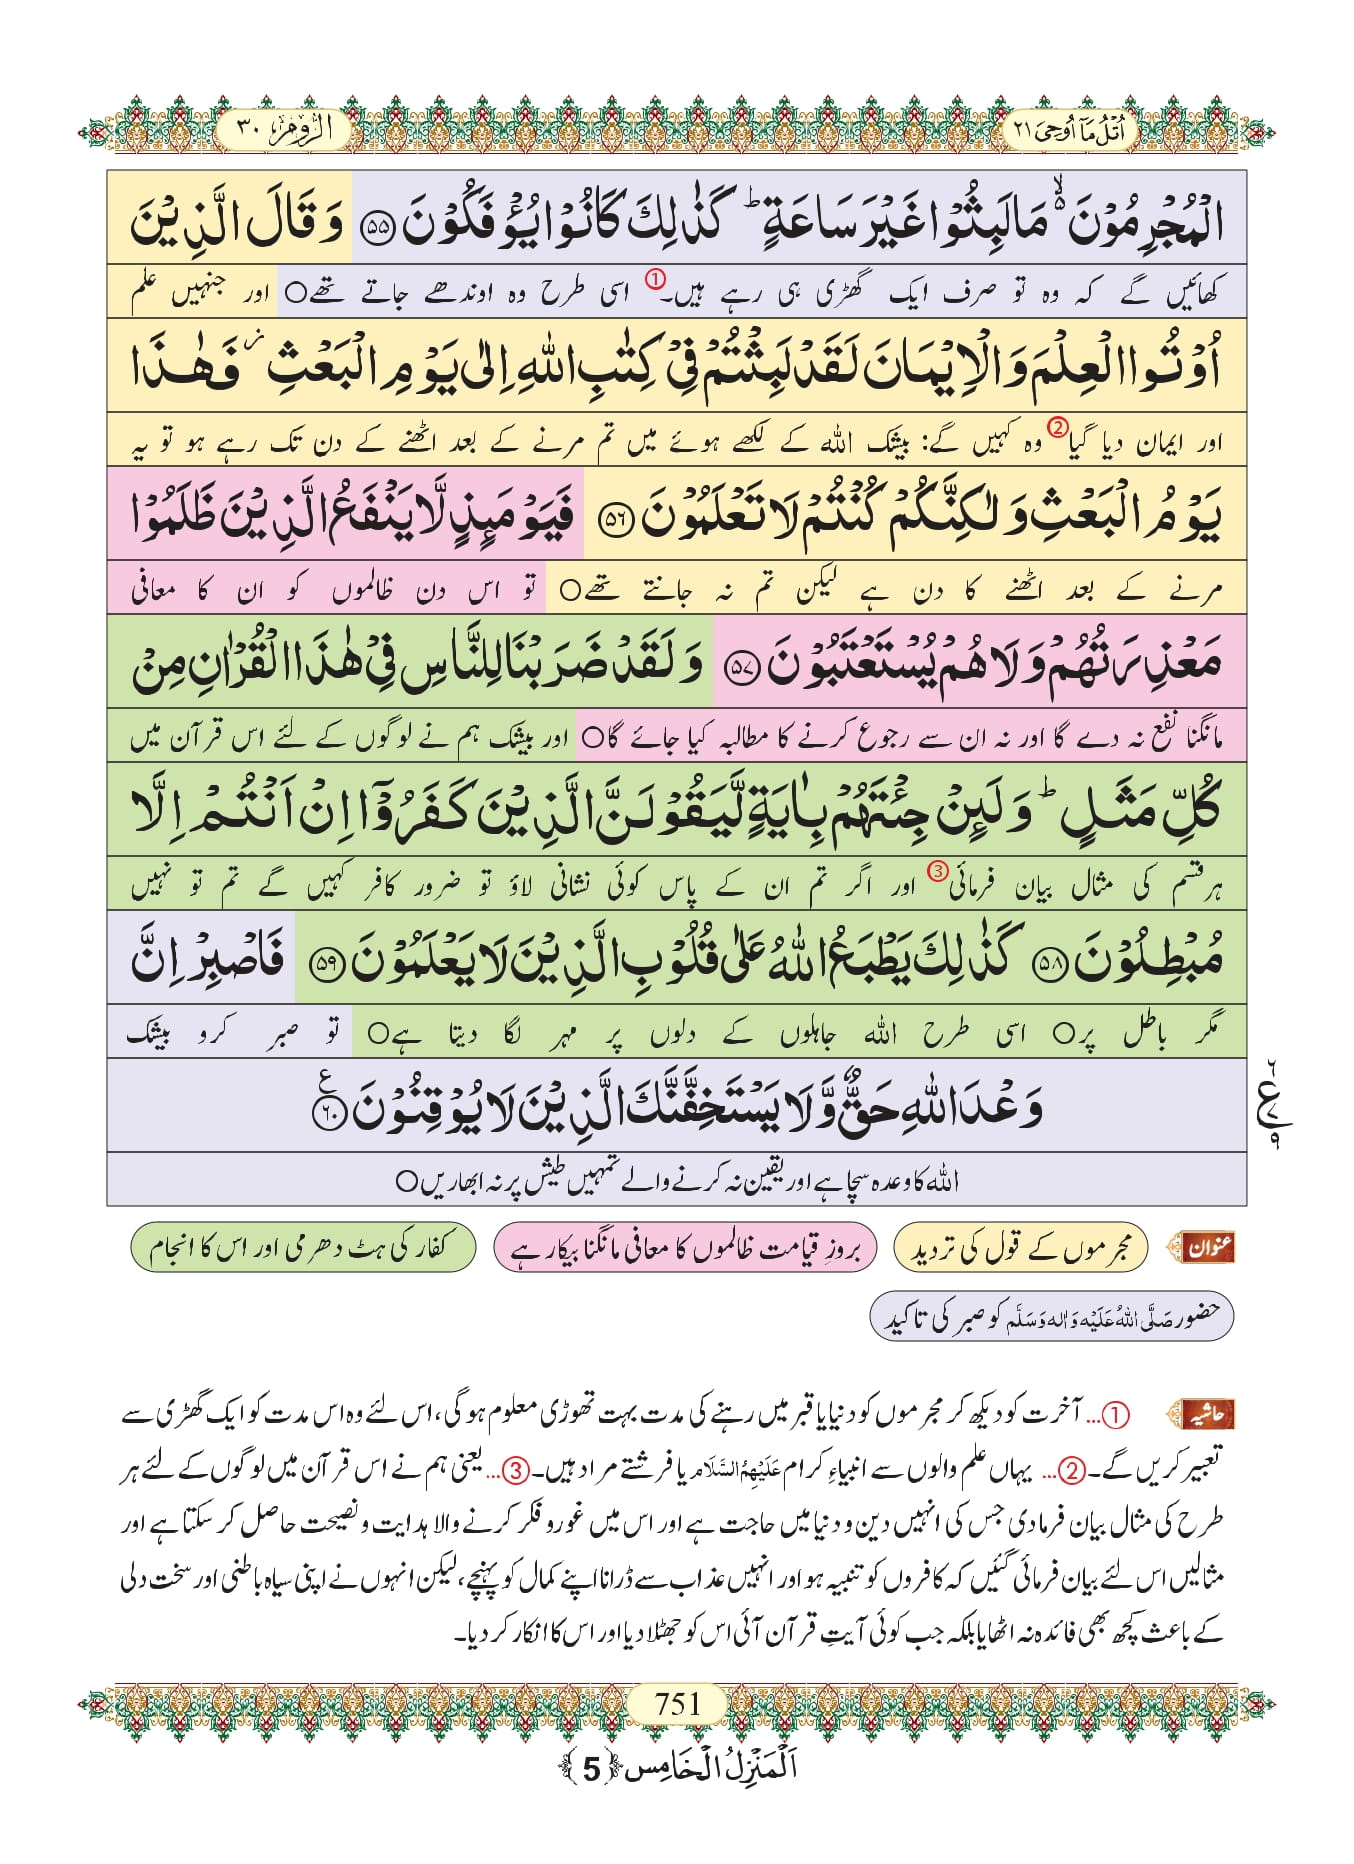 اُتْلُ مَاۤ اُوْحِیَ ٢١
الرُّوْم ٣٠
الْمُجْرِمُوْنَ ۙ۬ مَا لَبِثُوْا غَیْرَ سَاعَةٍ ؕ كَذٰلِكَ كَانُوْا یُؤْفَكُوْنَ ﴿۵۵﴾ وَ قَالَ الَّذِیْنَ
کھائیں گے کہ وہ تو صرف ایک گھڑی ہی رہے ہیں۔ ① اسی طرح وہ اوندھے جاتے تھے○ اور جنہیں علم
اُوْتُوا الْعِلْمَ وَ الْاِیْمَانَ لَقَدْ لَبِثْتُمْ فِیْ كِتٰبِ اللّٰهِ اِلٰى یَوْمِ الْبَعْثِ ؗ فَهٰذَا
اور ایمان دیا گیا ② وہ کہیں گے: بیشک اللہ کے لکھے ہوئے میں تم مرنے کے بعد اٹھنے کے دن تک رہے ہو تو یہ
یَوْمُ الْبَعْثِ وَ لٰكِنَّكُمْ كُنْتُمْ لَا تَعْلَمُوْنَ ﴿۵۶﴾ فَیَوْمَىٕذٍ لَّا یَنْفَعُ الَّذِیْنَ ظَلَمُوْا
مرنے کے بعد اٹھنے کا دن ہے لیکن تم نہ جانتے تھے○ تو اس دن ظالموں کو ان کا معافی
مَعْذِرَتُهُمْ وَ لَا هُمْ یُسْتَعْتَبُوْنَ ﴿۵۷﴾ وَ لَقَدْ ضَرَبْنَا لِلنَّاسِ فِیْ هٰذَا الْقُرْاٰنِ مِنْ
مانگنا نفع نہ دے گا اور نہ ان سے رجوع کرنے کا مطالبہ کیا جائے گا○ اور بیشک ہم نے لوگوں کے لئے اس قرآن میں
كُلِّ مَثَلٍ ؕ وَ لَىٕنْ جِئْتَهُمْ بِاٰیَةٍ لَّیَقُوْلَنَّ الَّذِیْنَ كَفَرُوْۤا اِنْ اَنْتُمْ اِلَّا
ہر قسم کی مثال بیان فرمائی ③ اور اگر تم ان کے پاس کوئی نشانی لاؤ تو ضرور کافر کہیں گے تم تو نہیں
مُبْطِلُوْنَ ﴿۵۸﴾ كَذٰلِكَ یَطْبَعُ اللّٰهُ عَلٰى قُلُوْبِ الَّذِیْنَ لَا یَعْلَمُوْنَ ﴿۵۹﴾ فَاصْبِرْ اِنَّ
مگر باطل پر○ اسی طرح اللہ جاہلوں کے دلوں پر مہر لگا دیتا ہے○ تو صبر کرو بیشک
وَعْدَ اللّٰهِ حَقٌّ وَّ لَا یَسْتَخِفَّنَّكَ الَّذِیْنَ لَا یُوْقِنُوْنَ ﴿۶۰﴾ ع
٢ ع ٧ ٩
اللہ کا وعدہ سچا ہے اور یقین نہ کرنے والے تمہیں طیش پر نہ ابھاریں○
عنوان مجرموں کے قول کی تردید بروزِ قیامت ظالموں کا معافی مانگنا بیکار ہے کفار کی ہٹ دھرمی اور اس کا انجام
حضور صَلَّى اللّٰهُ عَلَیْهِ وَ اٰلِهٖ وَسَلَّم کو صبر کی تاکید
حاشیہ ①… آخرت کو دیکھ کر مجرموں کو دنیا یا قبر میں رہنے کی مدت بہت تھوڑی معلوم ہو گی، اس لئے وہ اس مدت کو ایک گھڑی سے
تعبیر کریں گے۔ ②… یہاں علم والوں سے انبیاءِ کرام عَلَیْهِمُ السَّلَام یا فرشتے مراد ہیں۔ ③… یعنی ہم نے اس قرآن میں لوگوں کے لئے ہر
طرح کی مثال بیان فرمادی جس کی انہیں دین و دنیا میں حاجت ہے اور اس میں غور و فکر کرنے والا ہدایت و نصیحت حاصل کر سکتا ہے اور
مثالیں اس لئے بیان فرمائی گئیں کہ کافروں کو تنبیہ ہو اور انہیں عذاب سے ڈرانا اپنے کمال کو پہنچے، لیکن انہوں نے اپنی سیاہ باطنی اور سخت دلی
کے باعث کچھ بھی فائدہ نہ اٹھایا بلکہ جب کوئی آیتِ قرآن آئی اس کو جھٹلا دیا اور اس کا انکار کر دیا۔
751
اَلْمَنْزِلُ الْخَامِس ﴿5﴾